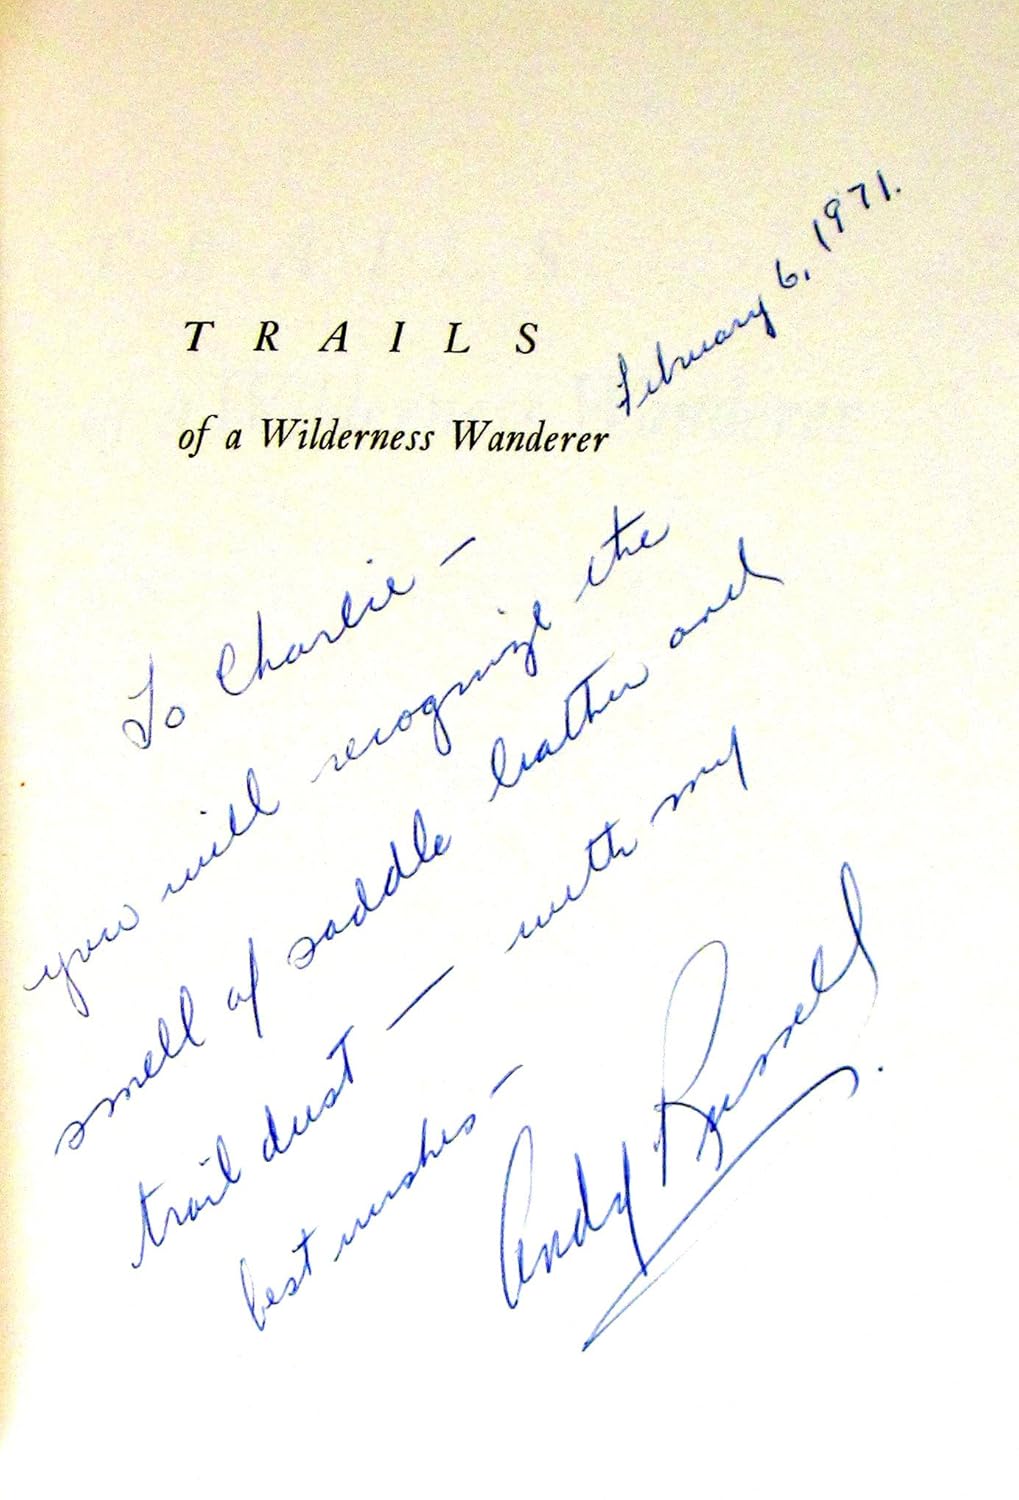 February 6, 1971.
TRAILS
of a Wilderness Wanderer
To Charlie –
you will recognize the
smell of saddle leather and
trail dust – with my
best wishes –
Andy Russell.